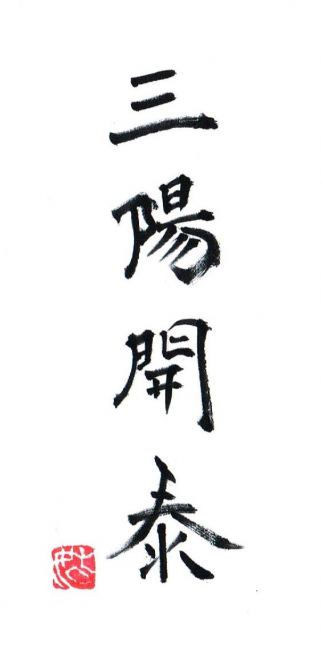 三陽開泰